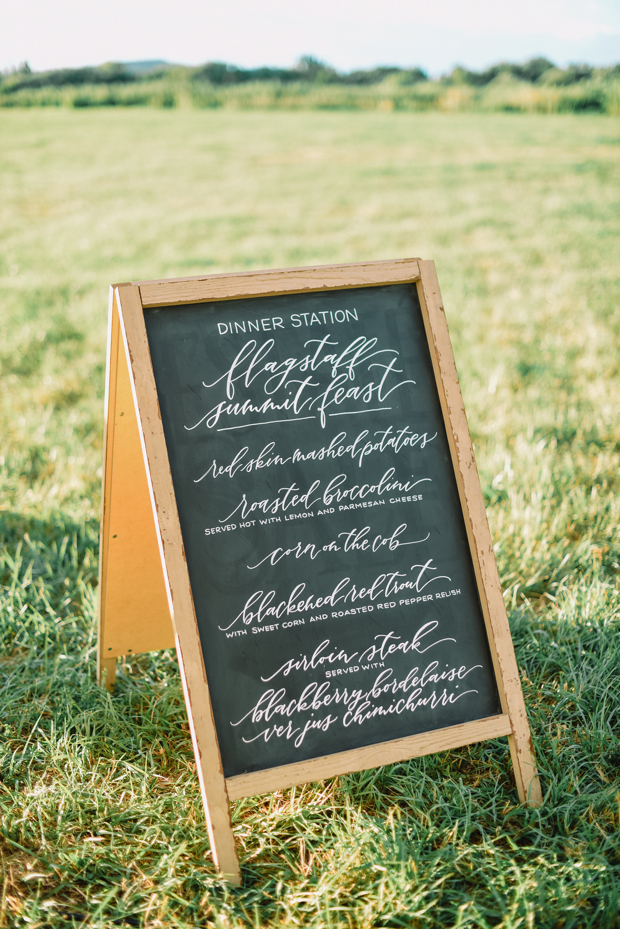 DINNER STATION
flagstaff
summit feast
red skin mashed potatoes
roasted broccolini
SERVED HOT WITH LEMON AND PARMESAN CHEESE
corn on the cob
blackened red trout
WITH SWEET CORN AND ROASTED RED PEPPER RELISH
sirloin steak
SERVED WITH
blackberry bordelaise
ver jus chimichurri